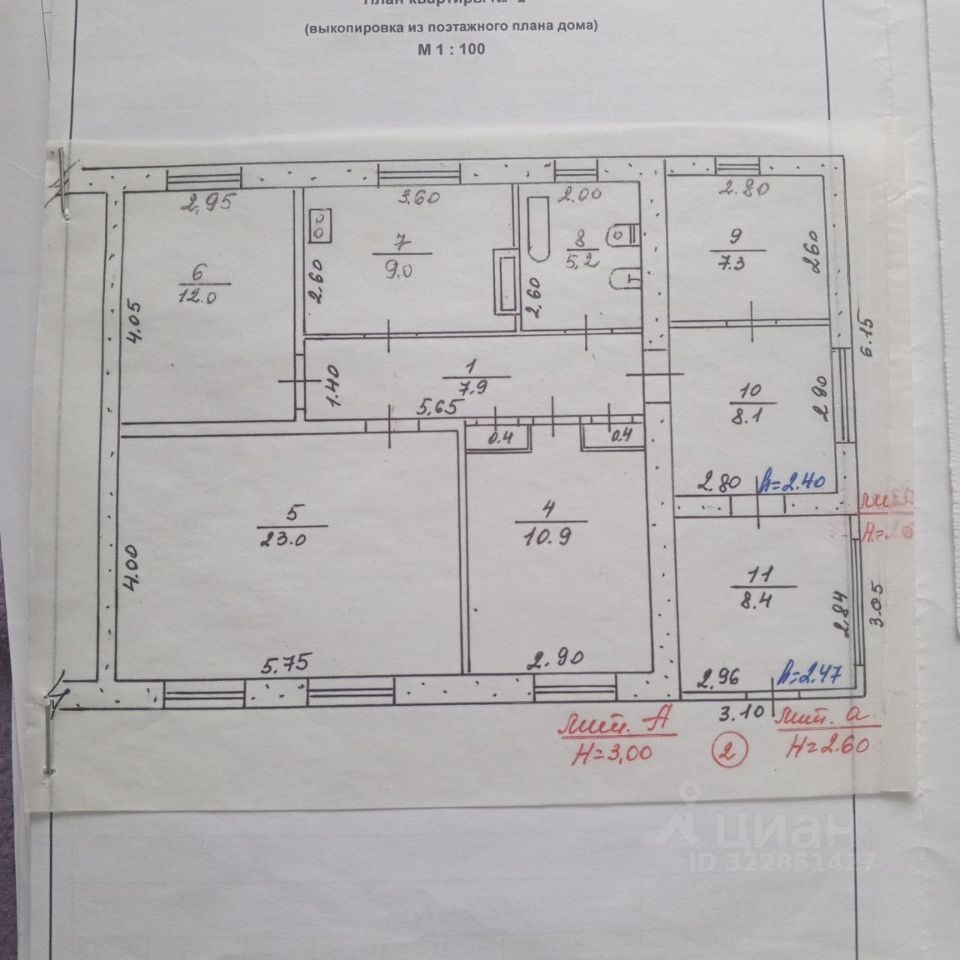 План квартиры №
(выкопировка из поэтажного плана дома)
М 1 : 100
2,95
3.60
2.00
2.80
7
9.0
8
5,2
9
7.3
2.60
6
12.0
2.60
2.60
4.05
6.15
1
7.9
1.40
5.65
10
8.1
2.90
0.4
0.4
2.80
h=2.40
4
10.9
5
23.0
4.00
11
8.4
2.84
3.05
5.75
2.90
2.96
h=2.47
3.10
лит. А
Н=3,00
2
лит. а
Н=2.60
циан
ID 322851427